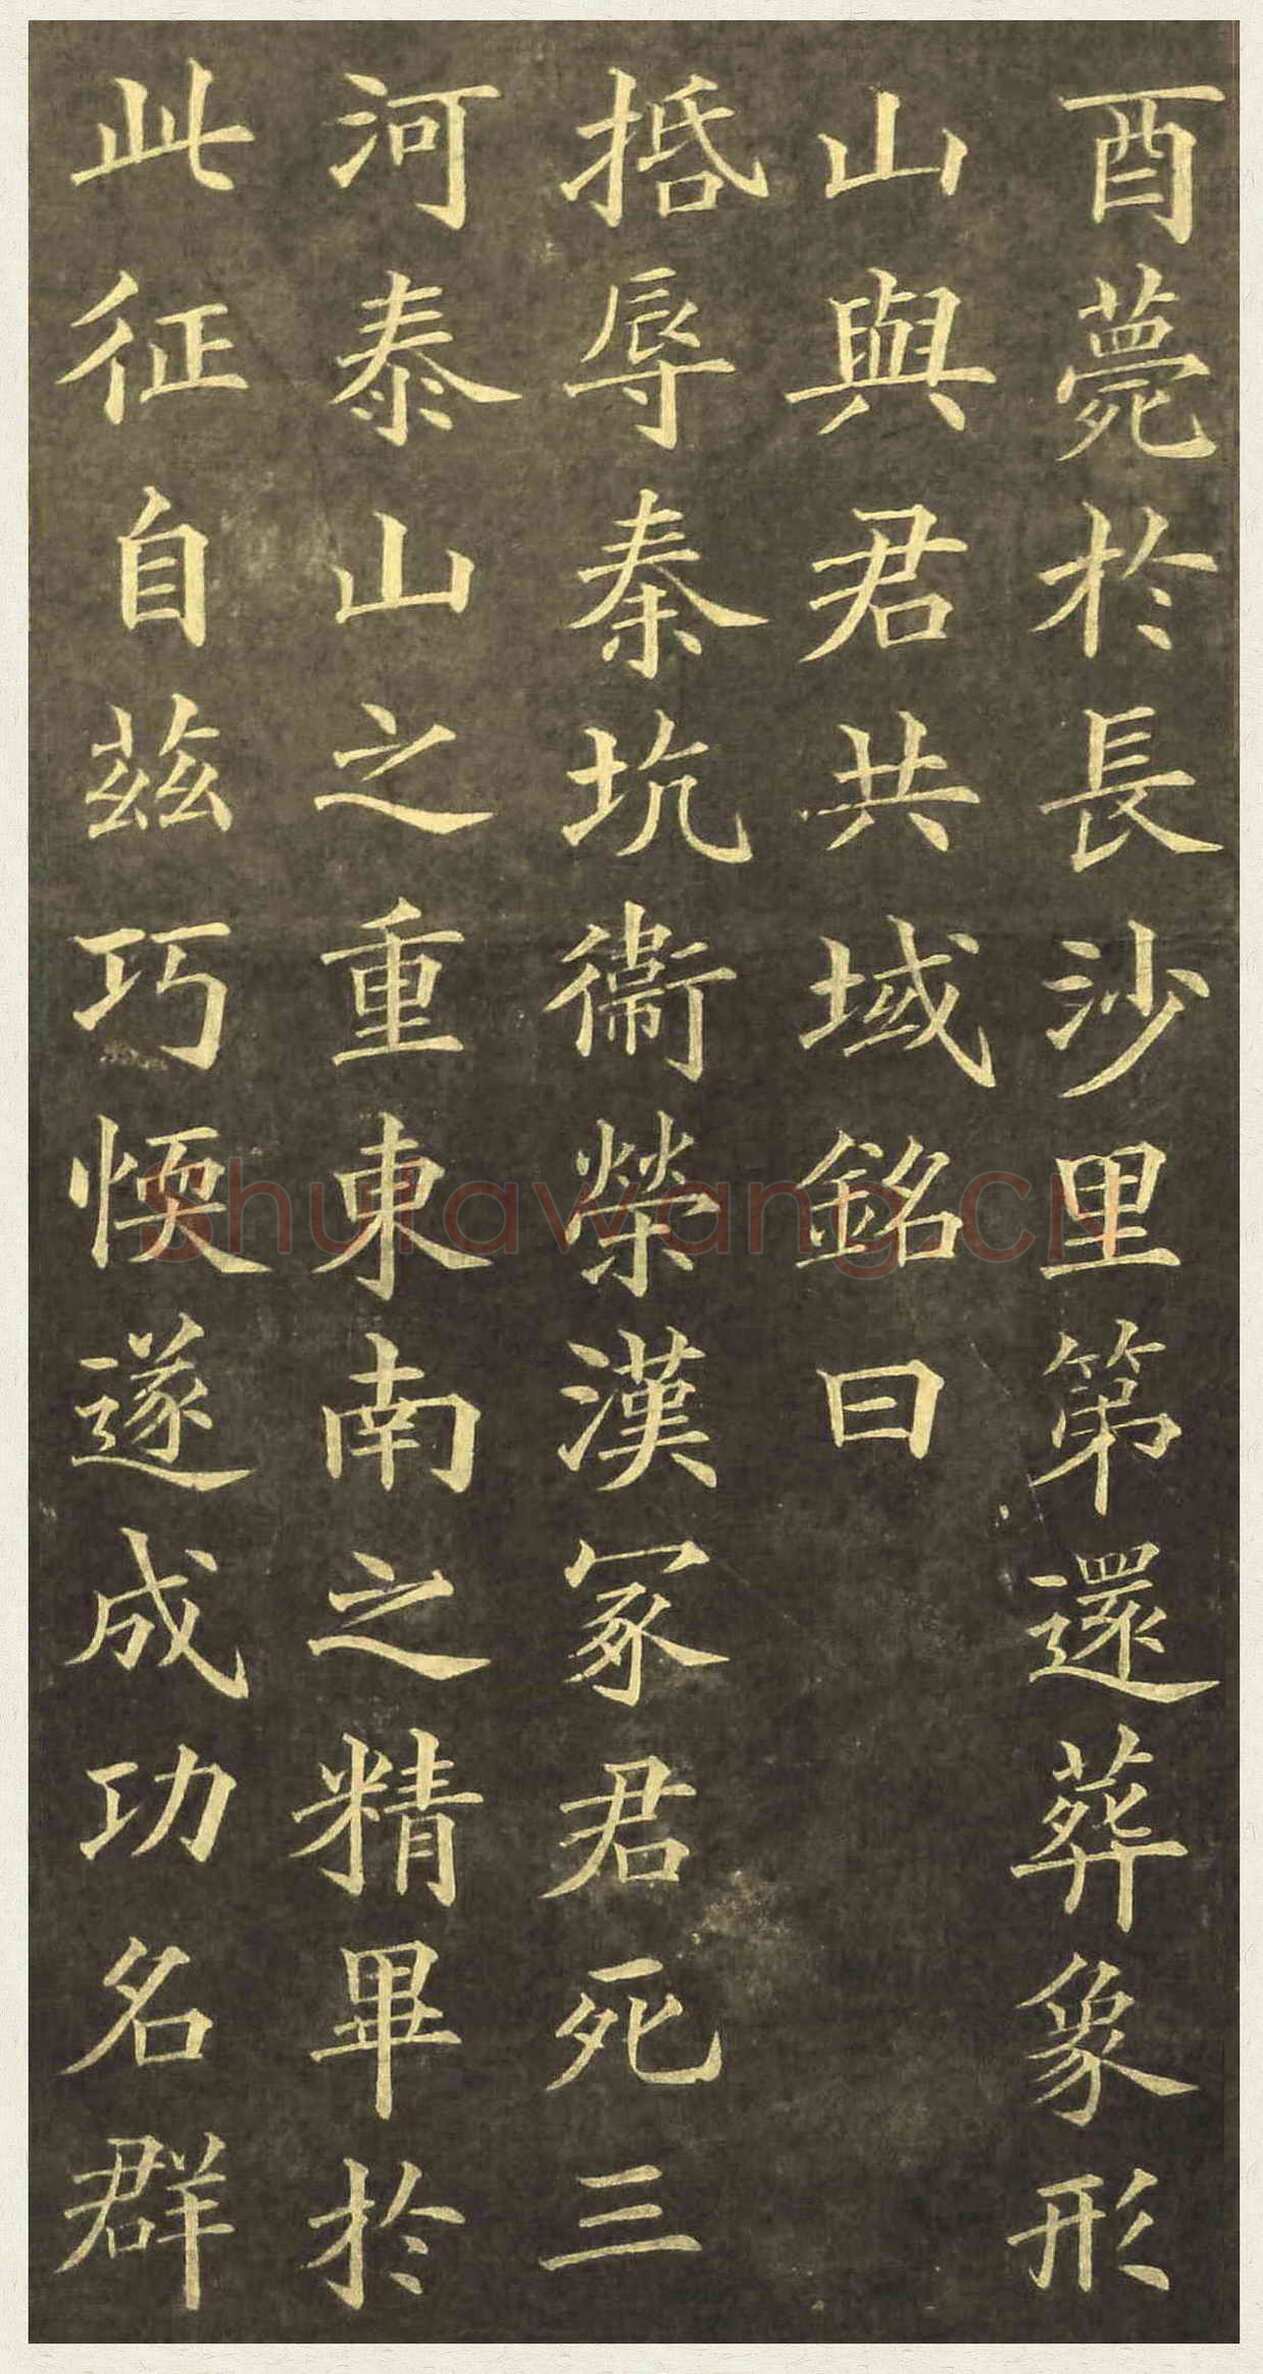 酉薨於長沙里第還葬象形
山與君共域銘曰
抵辱秦坑衞榮漢冢君死三
河泰山之重東南之精畢於
此征自茲巧愞遂成功名群
shufawang.cn